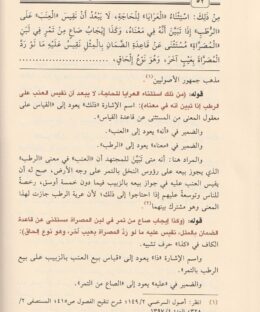 مِنْ ذَلِكَ: اسْتِثْنَاءُ «الْعَرَايَا» لِلْحَاجَةِ، لَا يَبْعُدُ أَنْ نَقِيسَ «الْعِنَبَ» عَلَى
«الرُّطَبِ» إِذَا تَبَيَّنَ أَنَّهُ فِي مَعْنَاهُ، وَكَذَا إِيجَابُ صَاعٍ مِنْ تَمْرٍ فِي لَبَنِ
«الْمُصَرَّاةِ» مُسْتَثْنًى عَنْ قَاعِدَةِ الضَّمَانِ بِالْمِثْلِ نَقِيسُ عَلَيْهِ مَا لَوْ رَدَّ
الْمُصَرَّاةَ بِعَيْبٍ آخَرَ، وَهُوَ نَوْعُ إِلْحَاقٍ،
مذهب جمهور الأصوليين(١).
قوله: (من ذلك استثناء العرايا للحاجة، لا يبعد أن نقيس العنب على
الرطب إذا تبين أنه في معناه): اسم الإشارة «ذلك» يعود إلى «القياس على
معقول المعنى من المستثنى عن قاعدة القياس».
والضمير في «أنه» يعود إلى «العنب».
والضمير في «معناه» يعود إلى «الرطب».
والمراد هنا: أنه متى تبيَّن للمجتهد أن «العنب» في معنى «الرطب»
الذي يجوز بيعه على رؤوس النخل بالتمر على وجه الأرض، صح له أن
يقيس العنب عليه في جواز بيعه بالزبيب فيما دون خمسة أوسق، رخصةً
وتوسعةً على الناس في حاجتهم إذا احتاجوا إلى ذلك؛ لأن عرية الرطب جازت لهذا
المعنى وهو مشترك بينهما(٢).
قوله: (وكذا إيجاب صاع من تمر في لبن المصراة مستثنى عن قاعدة
الضمان بالمثل، نقيس عليه ما لو رد المصراة بعيب آخر، وهو نوع إلحاق):
الكاف في «كذا» حرف تشبيه.
واسم الإشارة «ذا» يعود إلى «قياس بيع العنب بالزبيب على بيع
الرطب بالتمر».
والضمير في «عليه» يعود إلى «الصاع من التمر».
(١) انظر: أصول السرخسي ١٤٩/٢؛ شرح تنقيح الفصول ص٤١٥؛ المستصفى ٢/